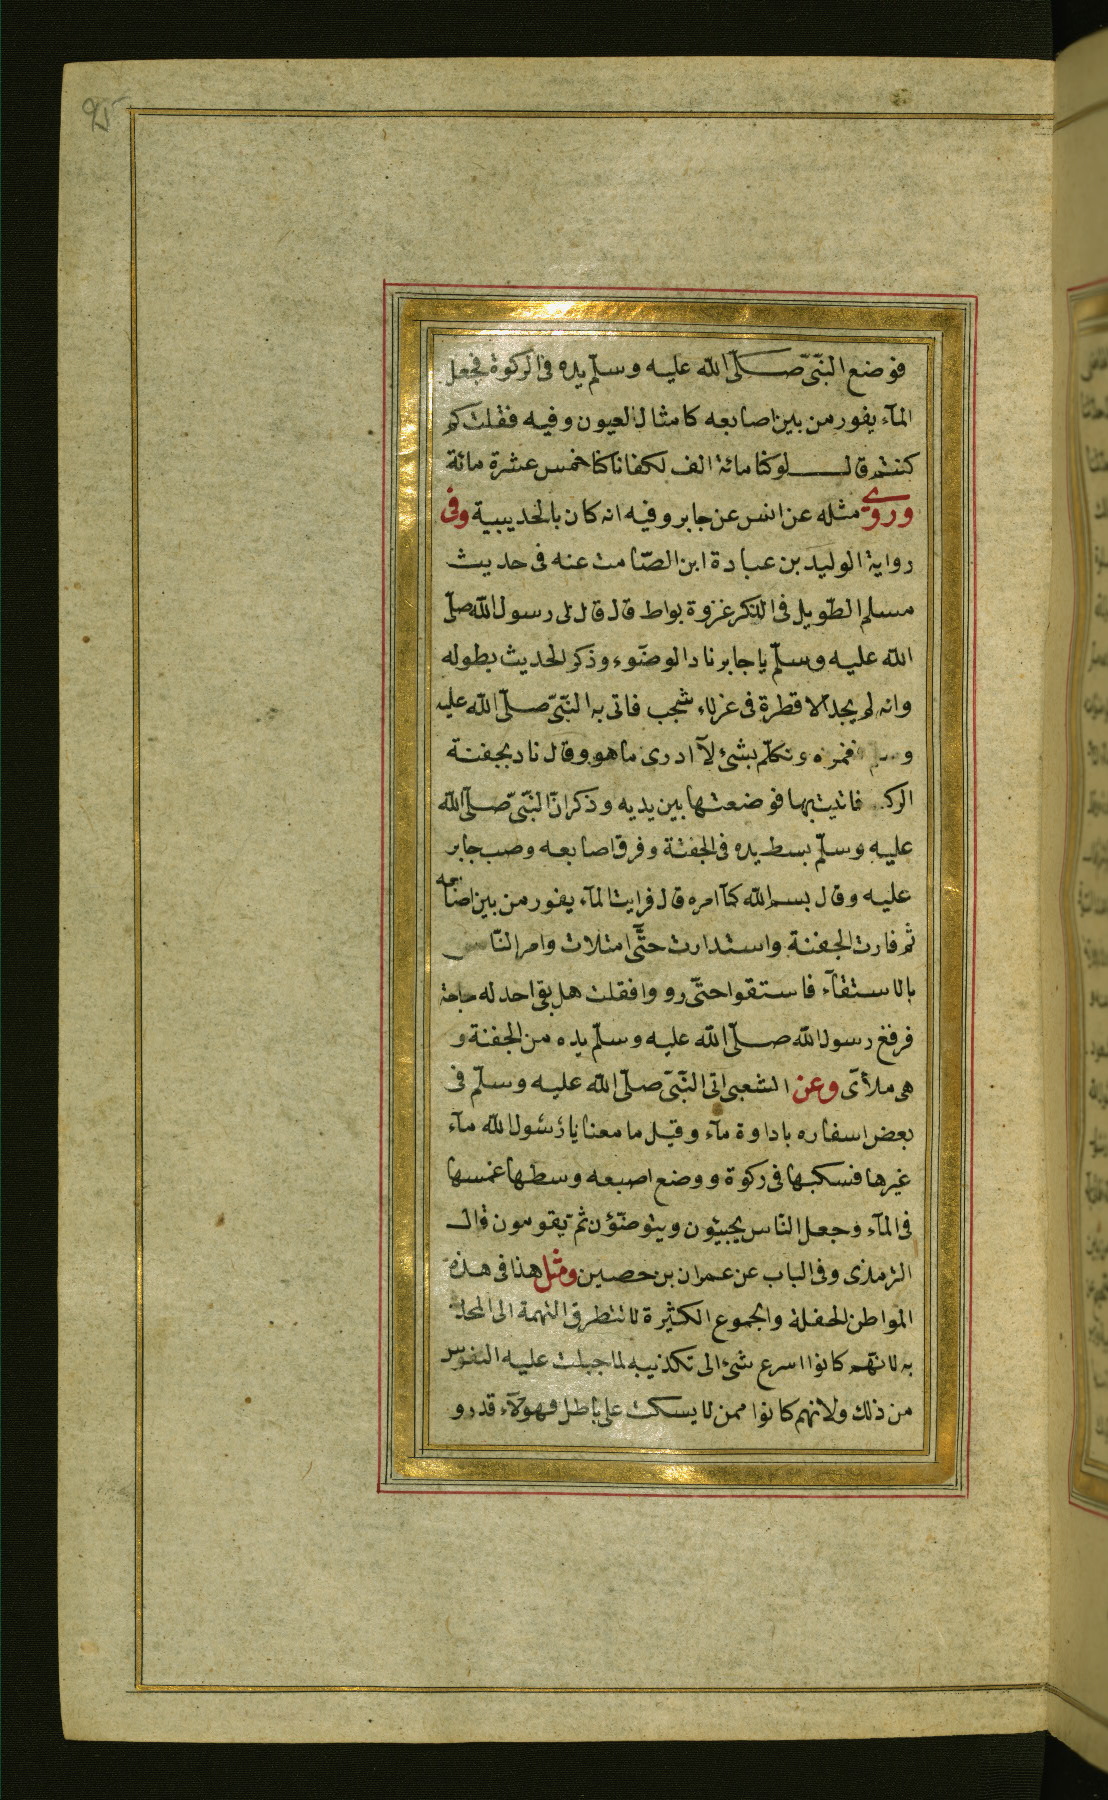 فوضع النّبّى صلّى الله عليه وسلّم يده فى الركوة فجعل
المآء يفور من بين اصابعه كامثال العيون وفيه فقلت كم
كنتم قال لوكنا مائة الف لكفانا كنا خمس عشرة مائة
وروى مثله عن انس عن جابر وفيه انه كان بالحديبية وفى
رواية الوليد بن عبادة ابن الصّامت عنه فى حديث
مسلم الطّويل فى الذكر غزوة بواط قال قال لى رسول الله صلّى
الله عليه وسلّم يا جابر ناد الوضوء وذكر الحديث بطوله
وانه لم يجد الا قطرة فى عزلاء شجب فاتى به النّبّى صلّى الله عليه
وسلم فغمزه وتكلّم بشئ لآ ادرى ما هو وقال ناد بجفنة
فاتيت بها فوضعتها بين يديه وذكر انّ النّبّى صلّى الله
عليه وسلّم بسط يده فى الجفنة وفرق اصابعه وصب جابر
عليه وقال بسم الله كمآ امره قال فرايت المآء يفور من بين اصابعه
ثم فارت الجفنة واستدارت حتّى امتلات وامر النّاس
بالاستقآء فاستقوا حتّى رووا فقلت هل بقى احد له حاجة
فرفع رسول الله صلّى الله عليه وسلّم يده من الجفنة و
هى ملأى وعن الشعبى اتى النّبّى صلّى الله عليه وسلّم فى
بعض اسفاره باداوة مآء وقيل ما معنا يا رسول الله مآء
غيرها فسكبها فى ركوة ووضع اصبعه وسطها غمسها
فى المآء وجعل النّاس يجيئون ويتوضّؤن ثم يقومون قال
الترمذى وفى الباب عن عمران بن حصين ومثل هذا فى هذه
المواطن الحفلة والجموع الكثيرة لا تتطرق التهمة الى المحدّث
به لانهم كانوا اسرع شئ الى تكذيبه لما جبلت عليه النفوس
من ذلك ولانهم كانوا ممن لا يسكت على باطل فهولآء قد رو